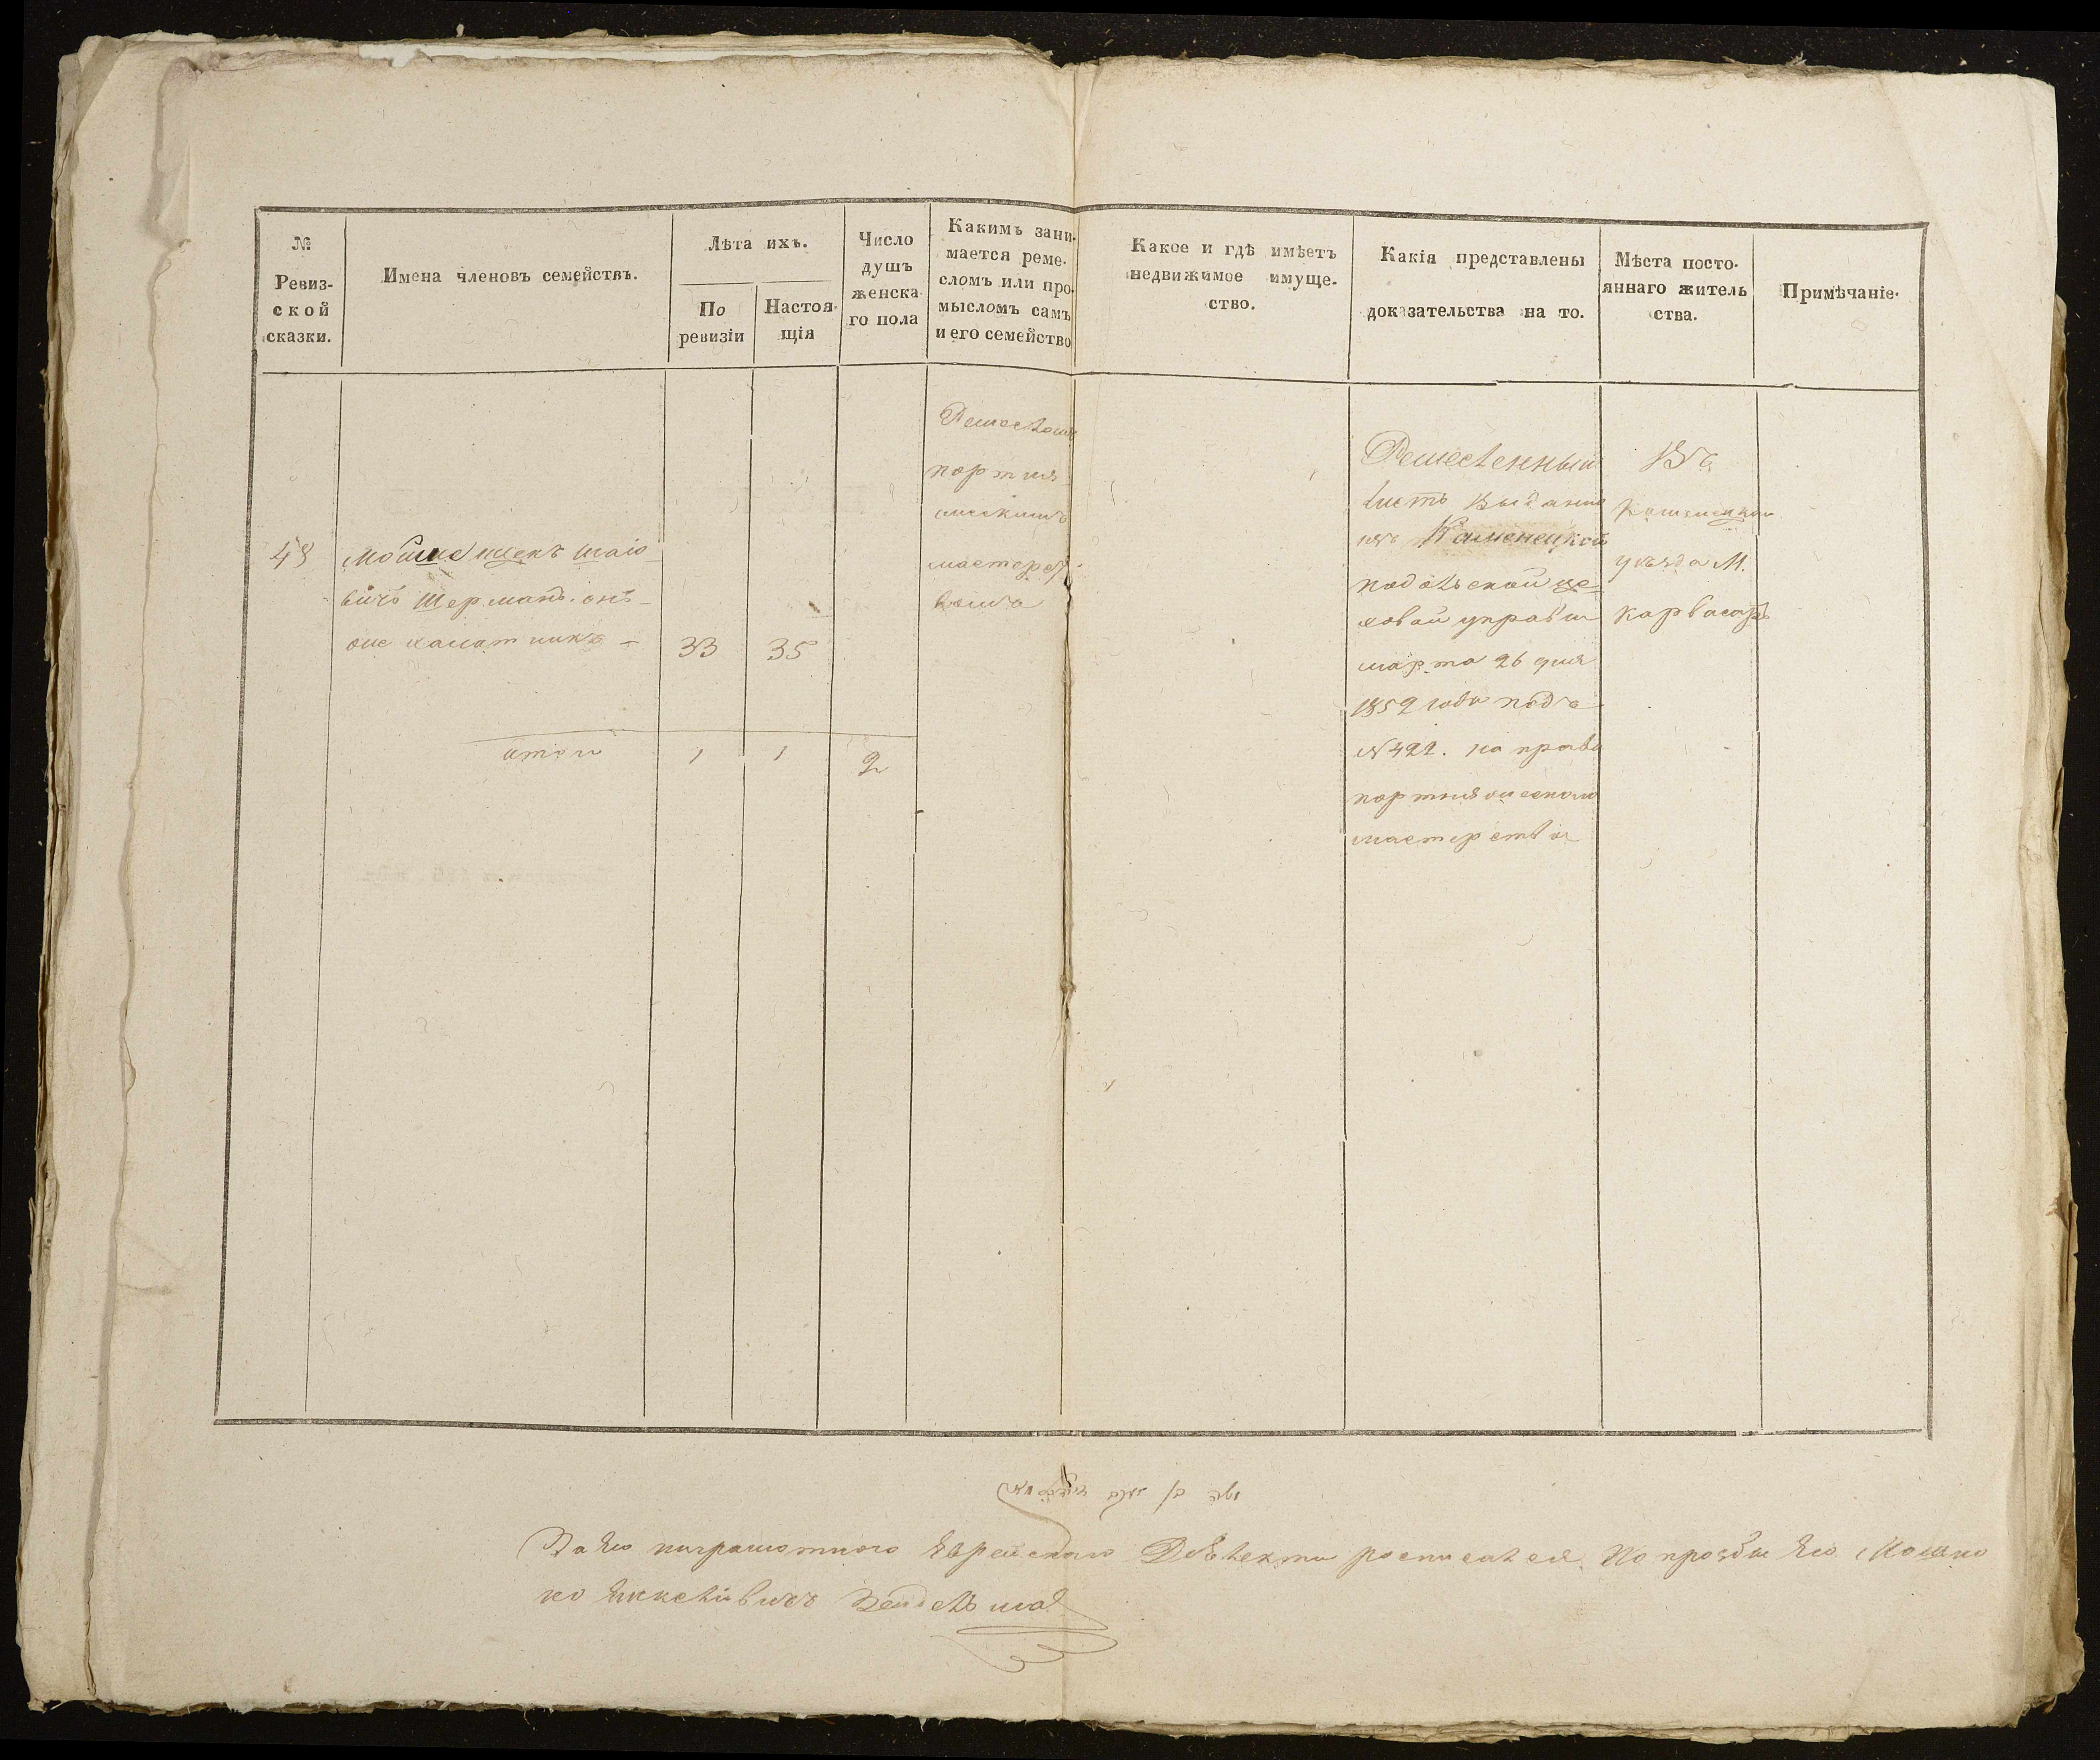 №
Ревиз-
ской
сказки.
Имена членовъ семействъ.
Лѣта ихъ.
По
ревизіи
Настоя-
щія
Число
душъ
женска-
го пола
Какимъ зани-
мается реме-
сломъ или про-
мысломъ самъ
и его семейство
Какое и гдѣ имѣетъ
недвижимое имуще-
ство.
Какія представлены
доказательства на то.
Мѣста посто-
яннаго житель
ства.
Примѣчаніе.
48
Мошко
вичъ Шерманъ. онъ-
33 35
итого 1 1 2
портня-
мастерст-
вомъ
Ремесленный
листъ выданны
изъ Каменецкой
подольской це-
ховой управы
марта 26 дня
1852 года подъ
№ 422. на право
портняжескаго
мастерства
Въ
Каменецкомъ
уѣзда М.
карвасары
За его неграмотнаго Еврейскаго росписался по прозбы его Мошко